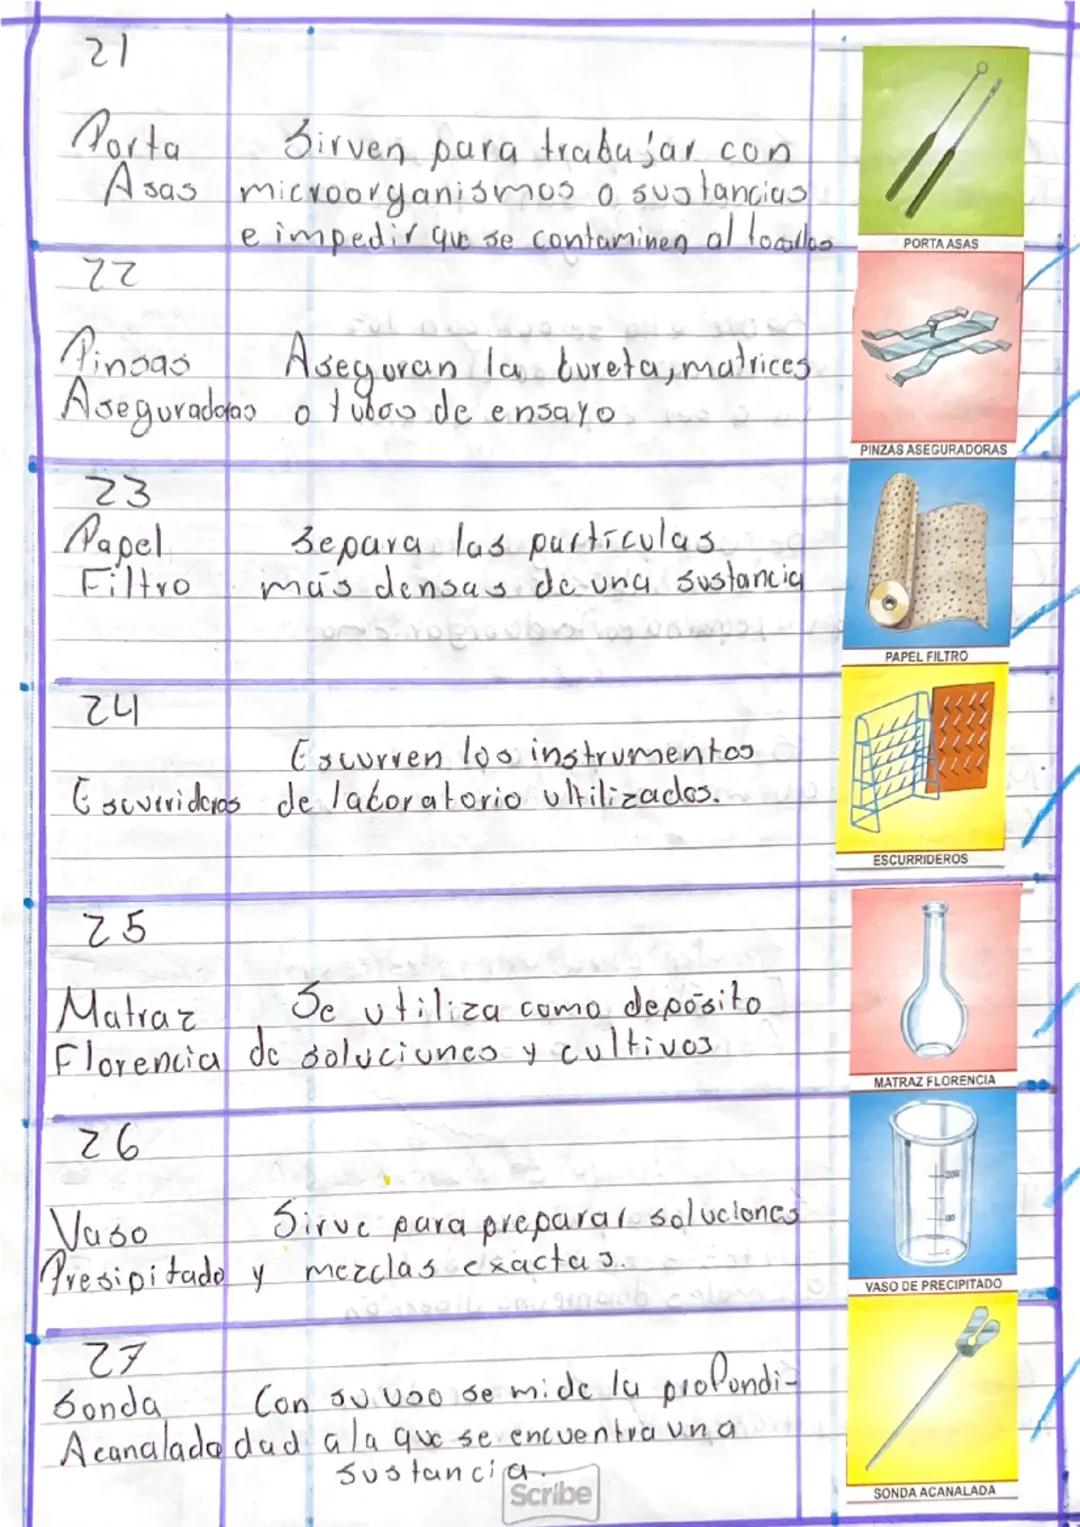 21
Porta
Asas
Sirven para trabajar con
microorganismos o sustancias
e impedir que se contaminen al
PORTA ASAS
22
Pinsas
Aseguradoras
Aseguran la bureta, matrices
o tubos de ensayo
PINZAS ASEGURADORAS
23
Papel
Filtro
Separa las partículas
más densas de una sustancia
PAPEL FILTRO
24
Escurrideros
Escurren los instrumentos
de laboratorio ultilizados.
ESCURRIDEROS
25
Matraz
Florencia
Se utiliza como depósito
de soluciones y cultivos
MATRAZ FLORENCIA
26
Vaso
Presipitado
Sirve para preparar soluciones
y mezclas exactas.
VASO DE PRECIPITADO
27
Sonda
Acanalada
Con su uso se mide la profundi-
dad a la que se encuentra una
sustancia.
SONDA ACANALADA
Scribe